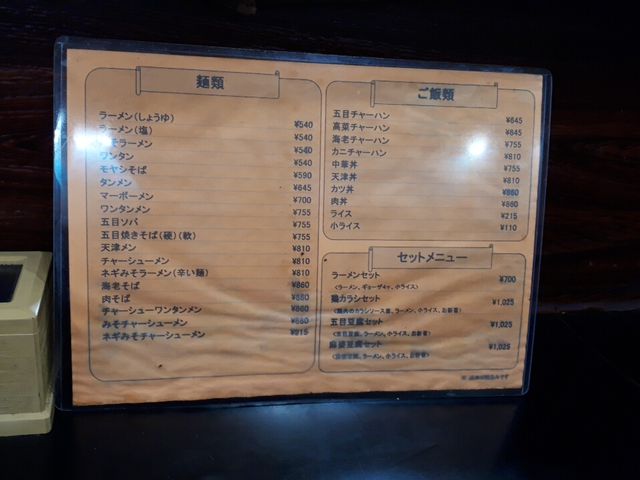 麺類
ラーメン(しょうゆ) ¥540
ラーメン(塩) ¥540
みそラーメン ¥540
ワンタン ¥540
モヤシそば ¥590
タンメン ¥645
マーボーメン ¥700
ワンタンメン ¥755
五目ソバ ¥755
五目焼きそば(硬)(軟) ¥755
天津メン ¥810
チャーシューメン ¥810
ネギみそラーメン(辛い麺) ¥810
海老そば ¥860
肉そば ¥860
チャーシューワンタンメン ¥860
みそチャーシューメン ¥860
ネギみそチャーシューメン ¥915
ご飯類
五目チャーハン ¥645
高菜チャーハン ¥645
海老チャーハン ¥755
カニチャーハン ¥810
中華丼 ¥755
天津丼 ¥810
カツ丼 ¥860
肉丼 ¥860
ライス ¥215
小ライス ¥110
セットメニュー
ラーメンセット ¥700
(ラーメン、ギョーザ4ヶ、小ライス)
鶏カラシセット ¥1,025
(鶏肉のカラシソース煮、ラーメン、小ライス、お新香)
五目豆腐セット ¥1,025
(五目豆腐、ラーメン、小ライス、お新香)
麻婆豆腐セット ¥1,025
(麻婆豆腐、ラーメン、小ライス、お新香)